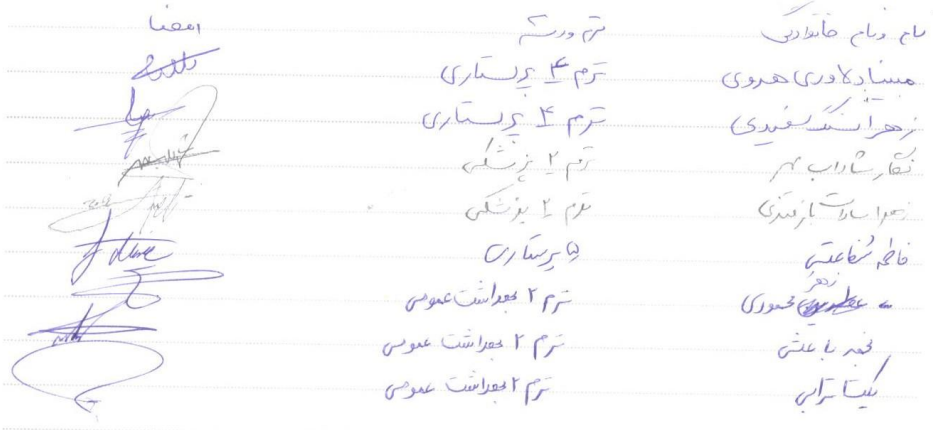 نام و نام خانوادگی ترم و رشته امضا
مبینا دلاوری هروی ترم ۴ پرستاری
زهرا سنگ سفیدی ترم ۴ پرستاری
نگار شاداب مهر ترم ۲ پزشکی
زهرا سادات ترم ۲ پزشکی
فاطمه شفاعتی ۵ پرستاری
زهرا محمودی ترم ۲ بهداشت عمومی
نجمه باغشی ترم ۲ بهداشت عمومی
یکتا ترابی ترم ۲ بهداشت عمومی